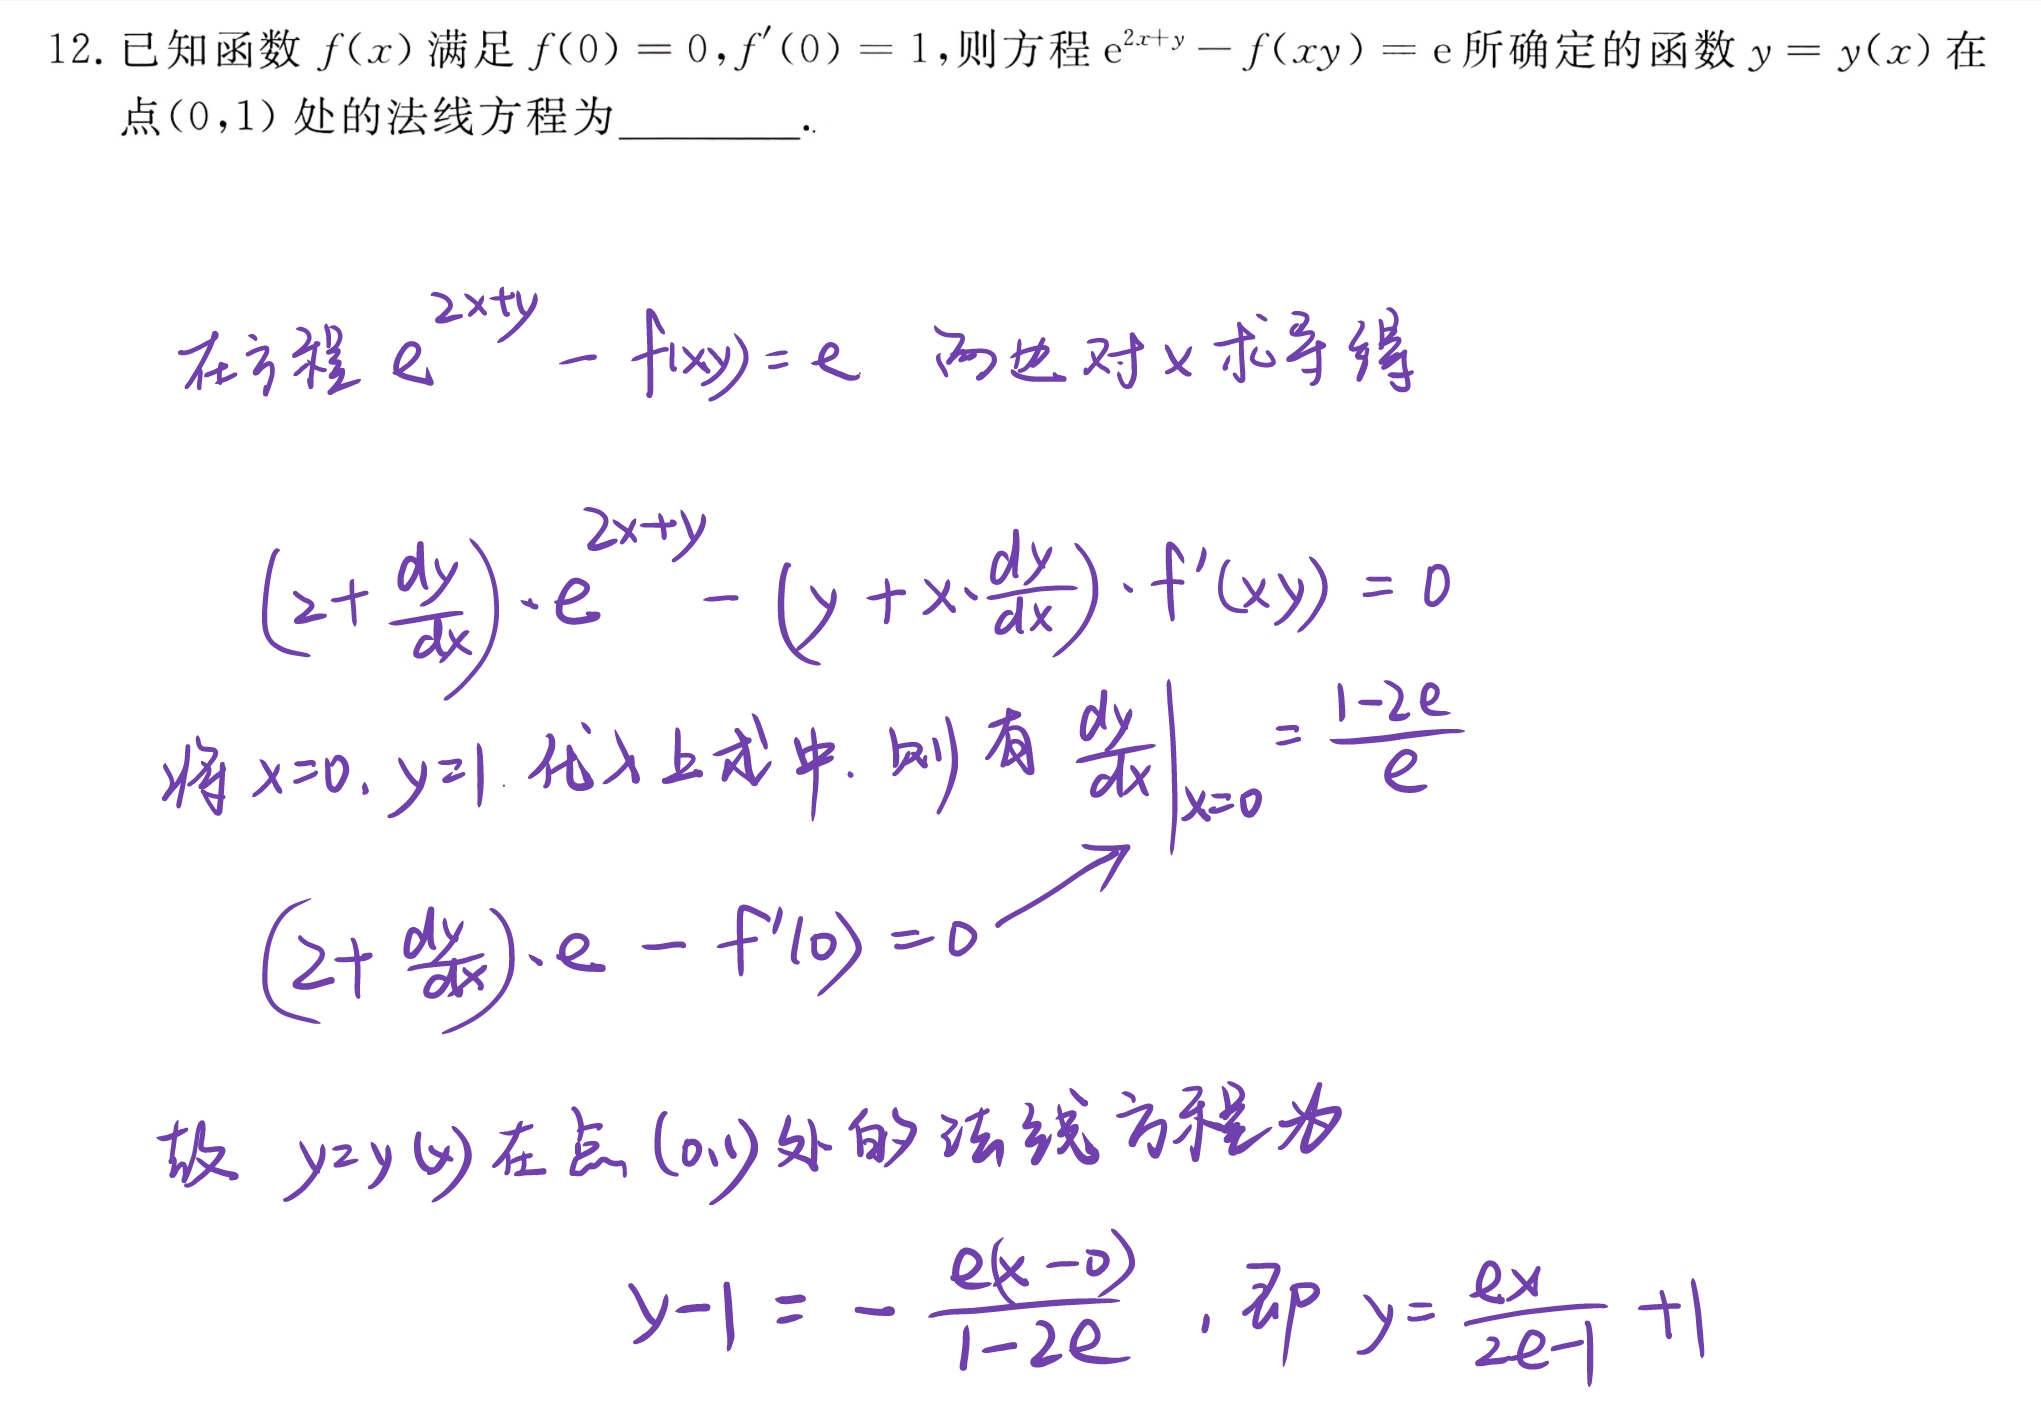 12. 已知函数 f(x) 满足 f(0) = 0, f′(0) = 1, 则方程 e^{2x+y} − f(xy) = e 所确定的函数 y = y(x) 在
点(0,1) 处的法线方程为________.
在方程 e^{2x+y} − f(xy) = e 两边对 x 求导得
(2+dy/dx)·e^{2x+y} − (y + x·dy/dx)·f′(xy) = 0
将 x=0, y=1. 代入上式中. 则有 dy/dx|_{x=0} = (1−2e)/e
(2+dy/dx)·e − f′(0) = 0 ↗
故 y=y(x) 在点 (0,1) 处的法线方程为
y−1 = − e(x−0)/(1−2e) , 即 y= ex/(2e−1) +1